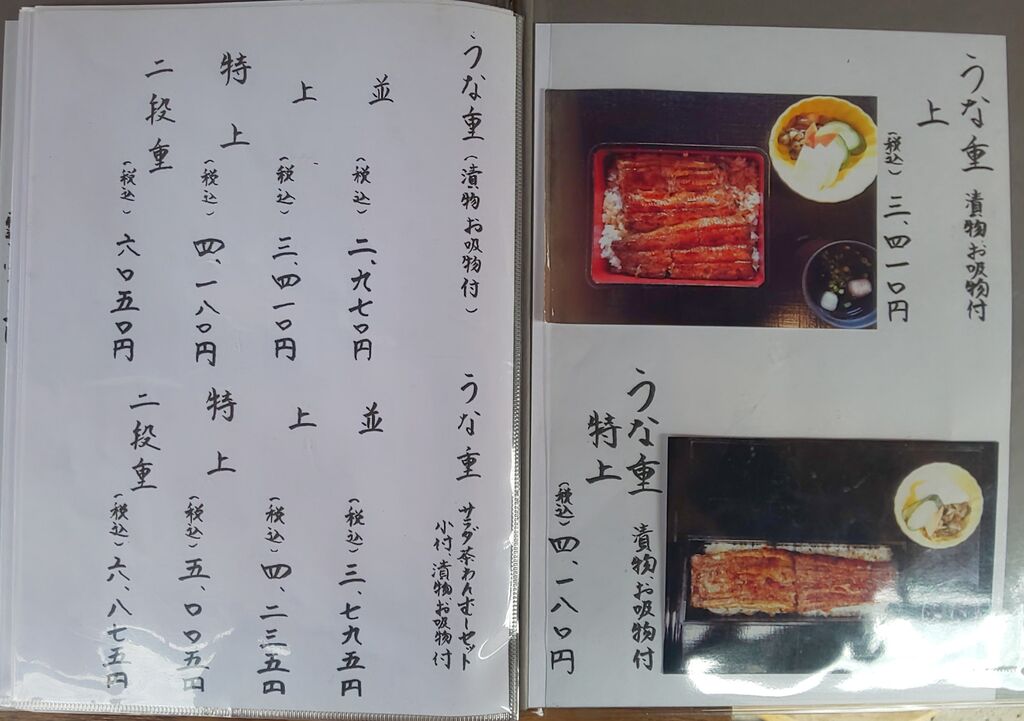 うな重 上 漬物お吸物付
(税込) 三、四一〇円
うな重 特上 漬物、お吸物付
(税込) 四、一八〇円
うな重 (漬物お吸物付)
並 (税込) 二、九七〇円
上 (税込) 三、四一〇円
特上 (税込) 四、一八〇円
二段重 (税込) 六〇五〇円
うな重 サラダ茶わんむしセット
小付漬物、お吸物付
並 (税込) 三、七九五円
上 (税込) 四、二三五円
特上 (税込) 五、〇〇五円
二段重 (税込) 六、八七五円